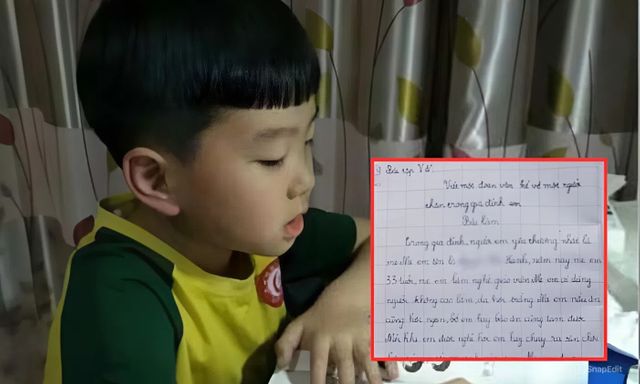 Bài tập
Viết một đoạn văn kể về một người
thân trong gia đình em
Bài làm
Trong gia đình, người em yêu thương nhất là
mẹ. Mẹ em tên là Hạnh, năm nay mẹ em
33 tuổi, mẹ em làm nghề giáo viên. Mẹ em có dáng
người không cao lắm, da hơi trắng. Mẹ em nấu ăn
cũng hơi ngon, bố em hay bảo ăn cũng tạm được
Mỗi khi em được nghỉ học em hay chạy ra sân chơi
SnapEdit